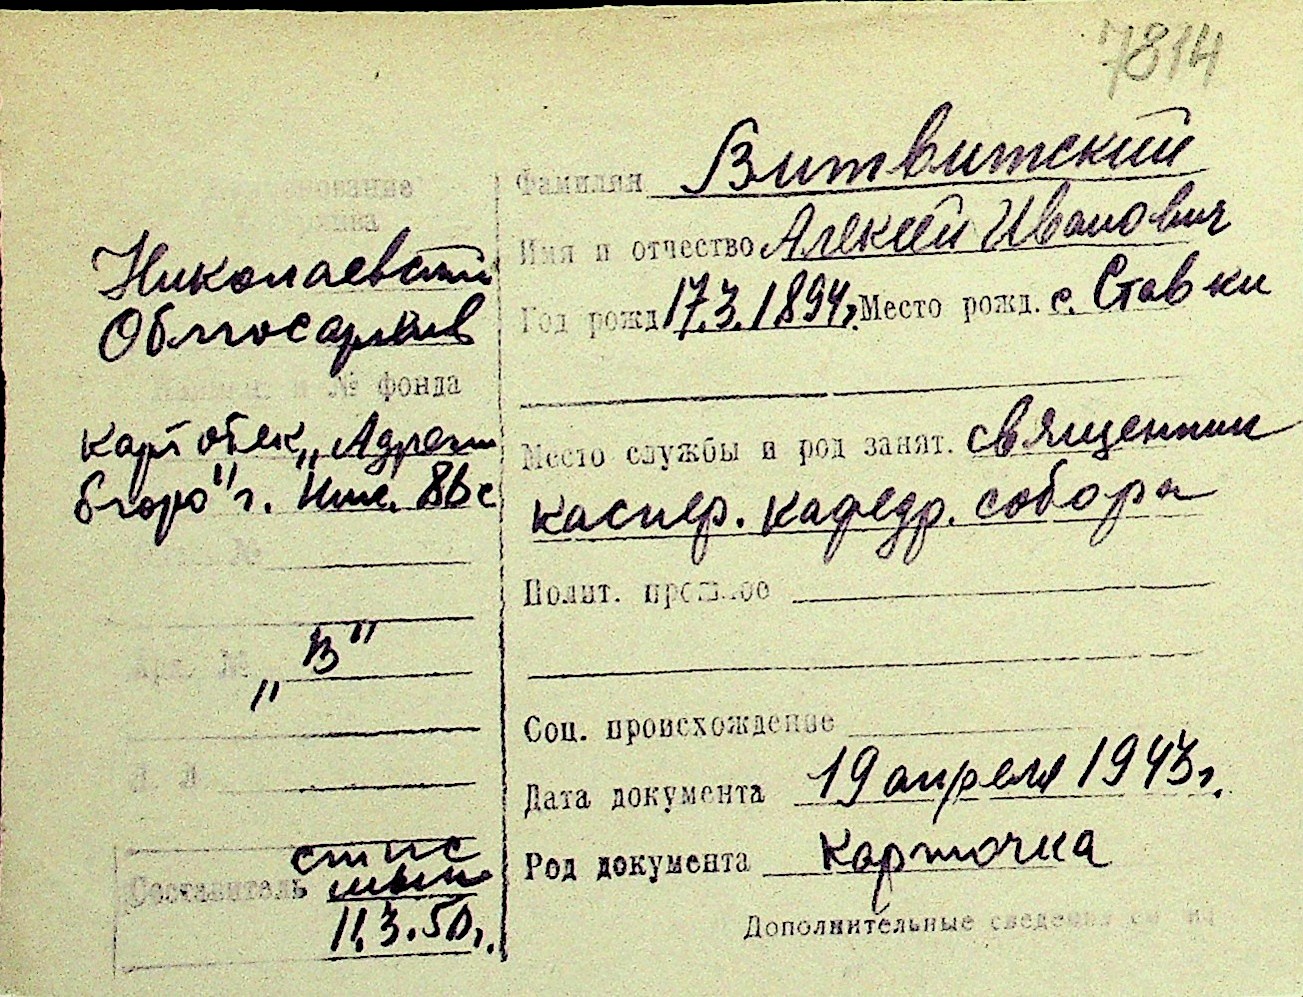 7814
Наименование
архива
Николаевский
Облгосархив
Наимен. и № фонда
картотек „Адресн
бюро" г. Ник.
№
„В"
Составитель
11.3.50г.
Фамилия Витвитский
Имя и отчество Алексей Иванович
Год рожд 17.3.1894г. Место рожд. с. Ставки
Место службы и род занят. священник
каспер. кафедр. собора
Полит. прошлое
Соц. происхождение
Дата документа 19 апреля 1943г.
Род документа Карточка
Дополнительные сведения